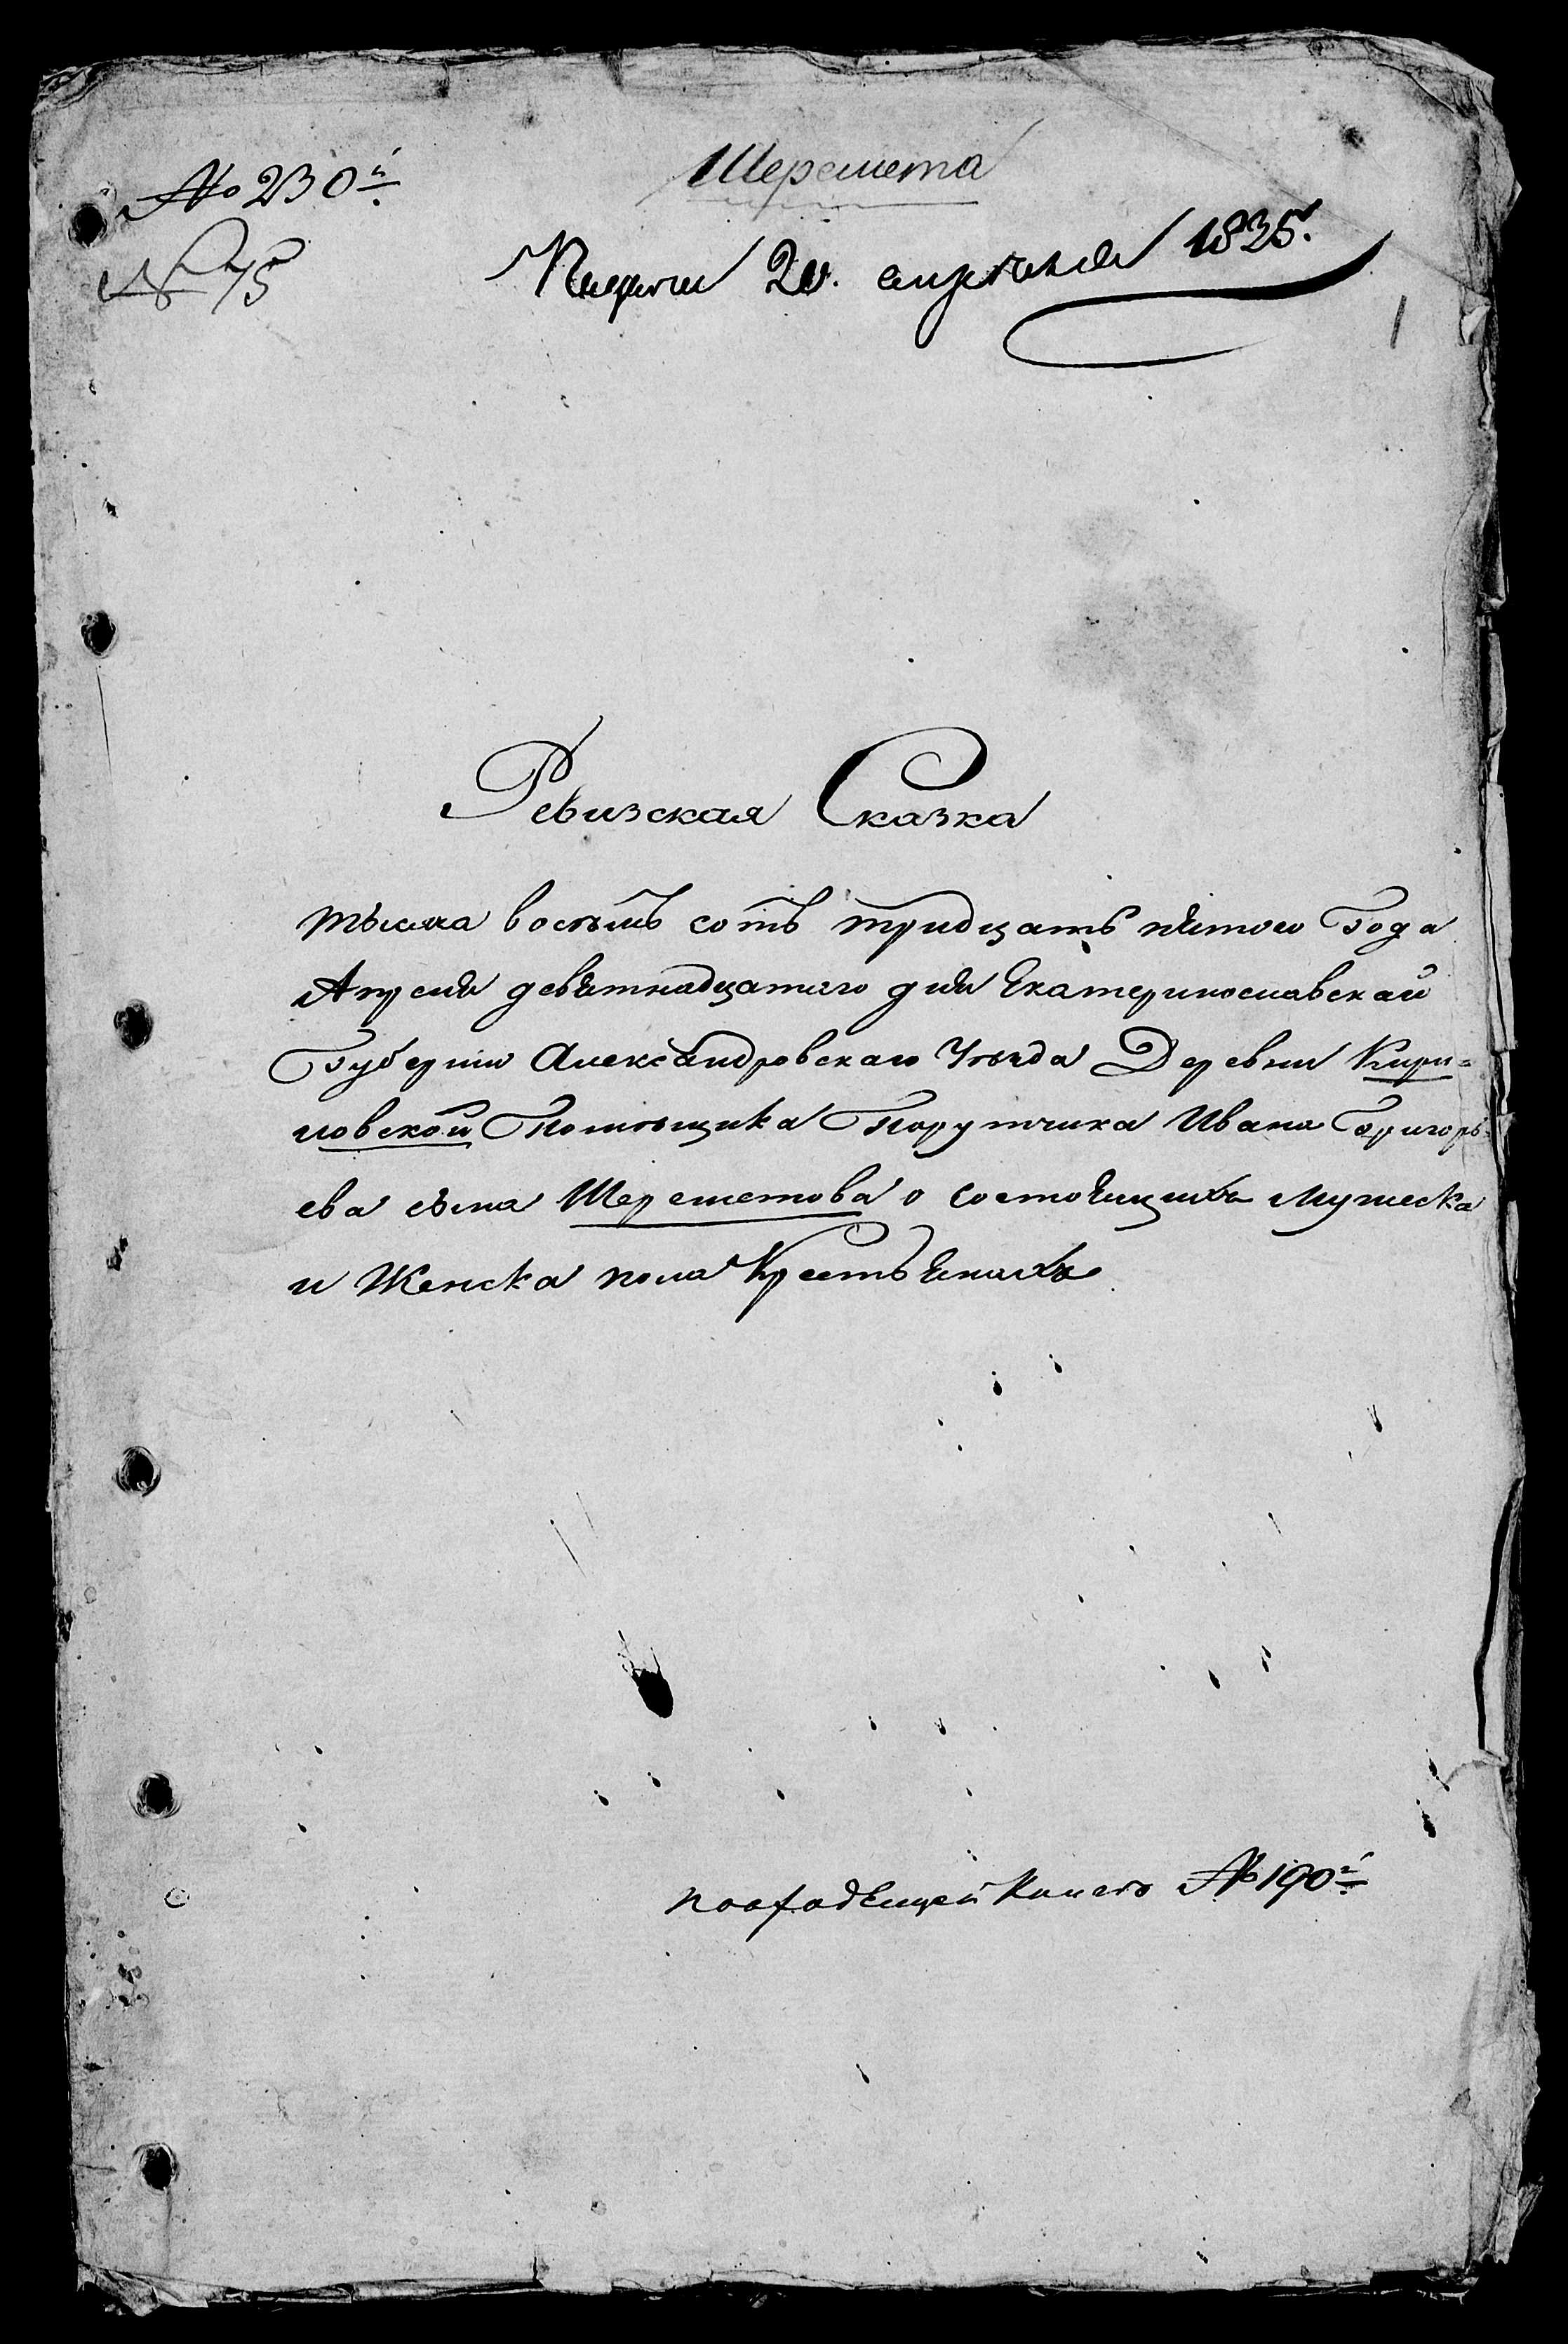 № 230й
Шеремета
№ 75
20. апреля 1835.
1
Ревизская Сказка
тысяча восемь сотъ тридцать пятого Года
Апреля девятнадцатаго дня Екатеринославской
Губернии Александровскаго Уезда Деревни Кири=
ловской Помещика Порутчика Ивана Григорь=
ева сына Шереметова о состоящихъ мужеска
и Женска пола Крестьянахъ.
повходящей Книге №190й